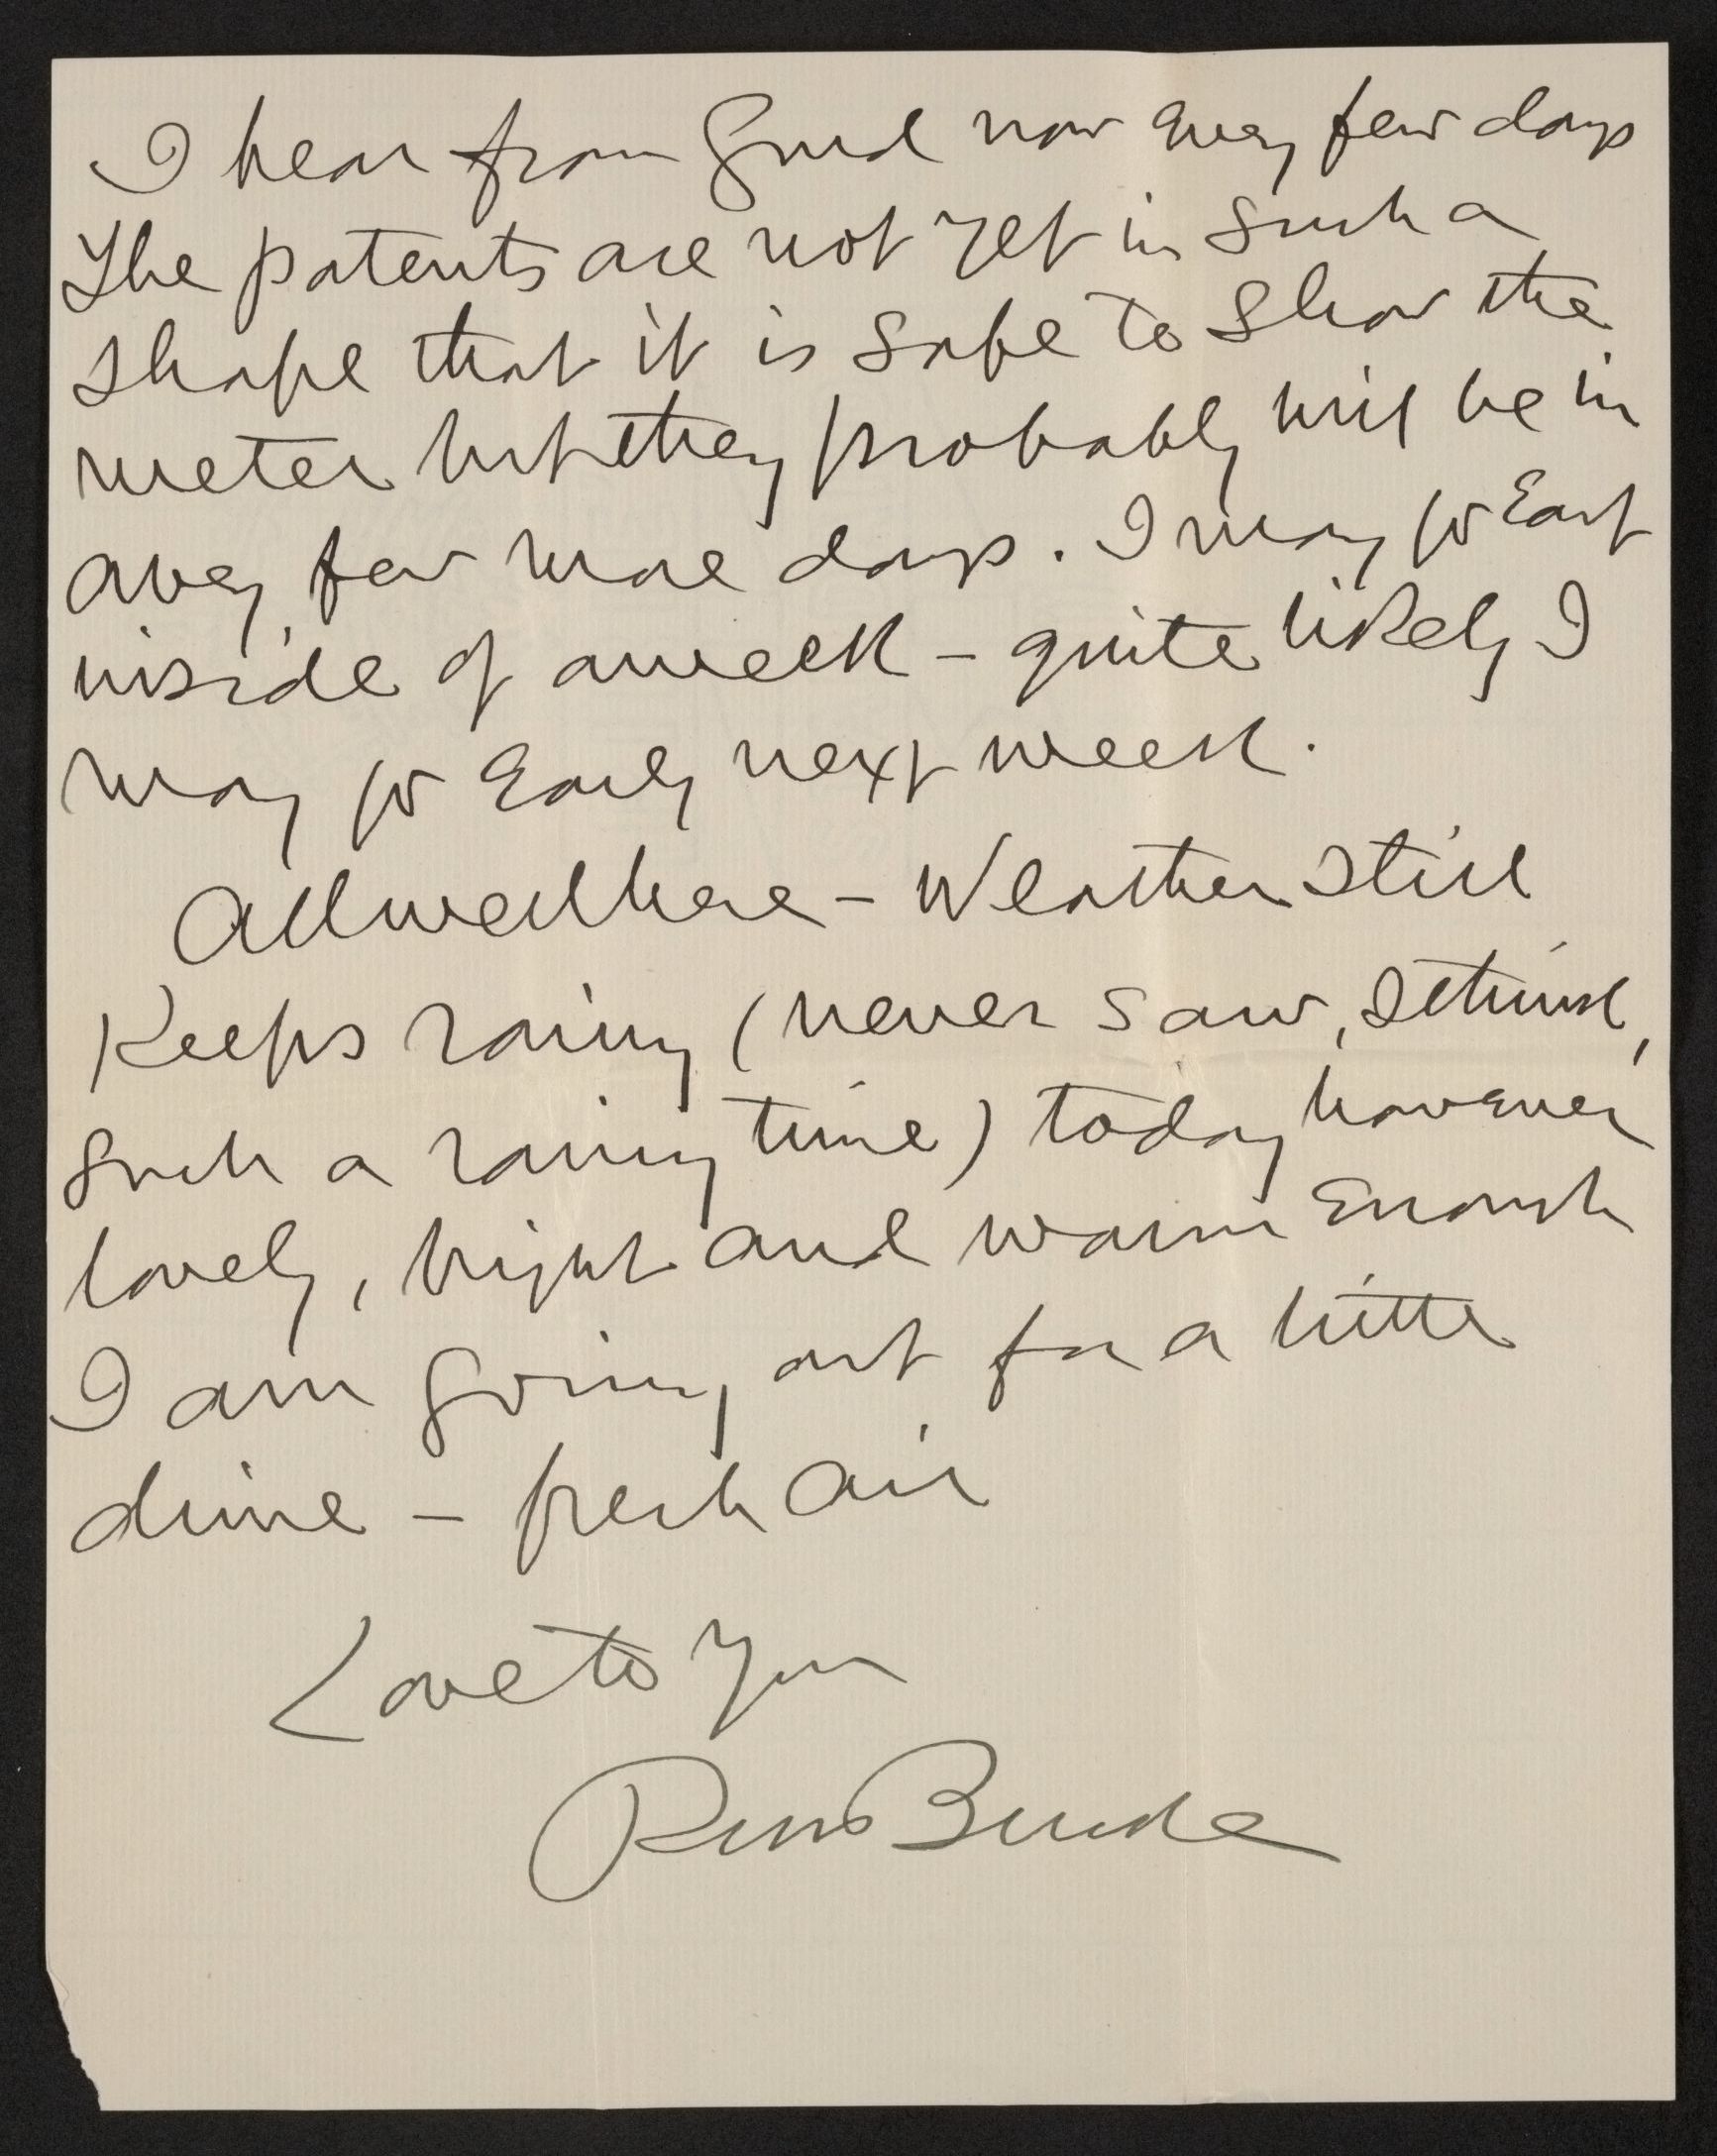 I hear from Gurd now every few days
The patents are not yet in such a
shape that it is safe to show the
meter but they probably will be in
a very few more days. I may go East
inside of a week – quite likely I
may go Early next week.
All well here – Weather still
Keeps rainy (never saw, I think,
such a rainy time) today however
lovely, bright and warm Enough
I am going out for a little
drive – fresh air
Love to You
Burke